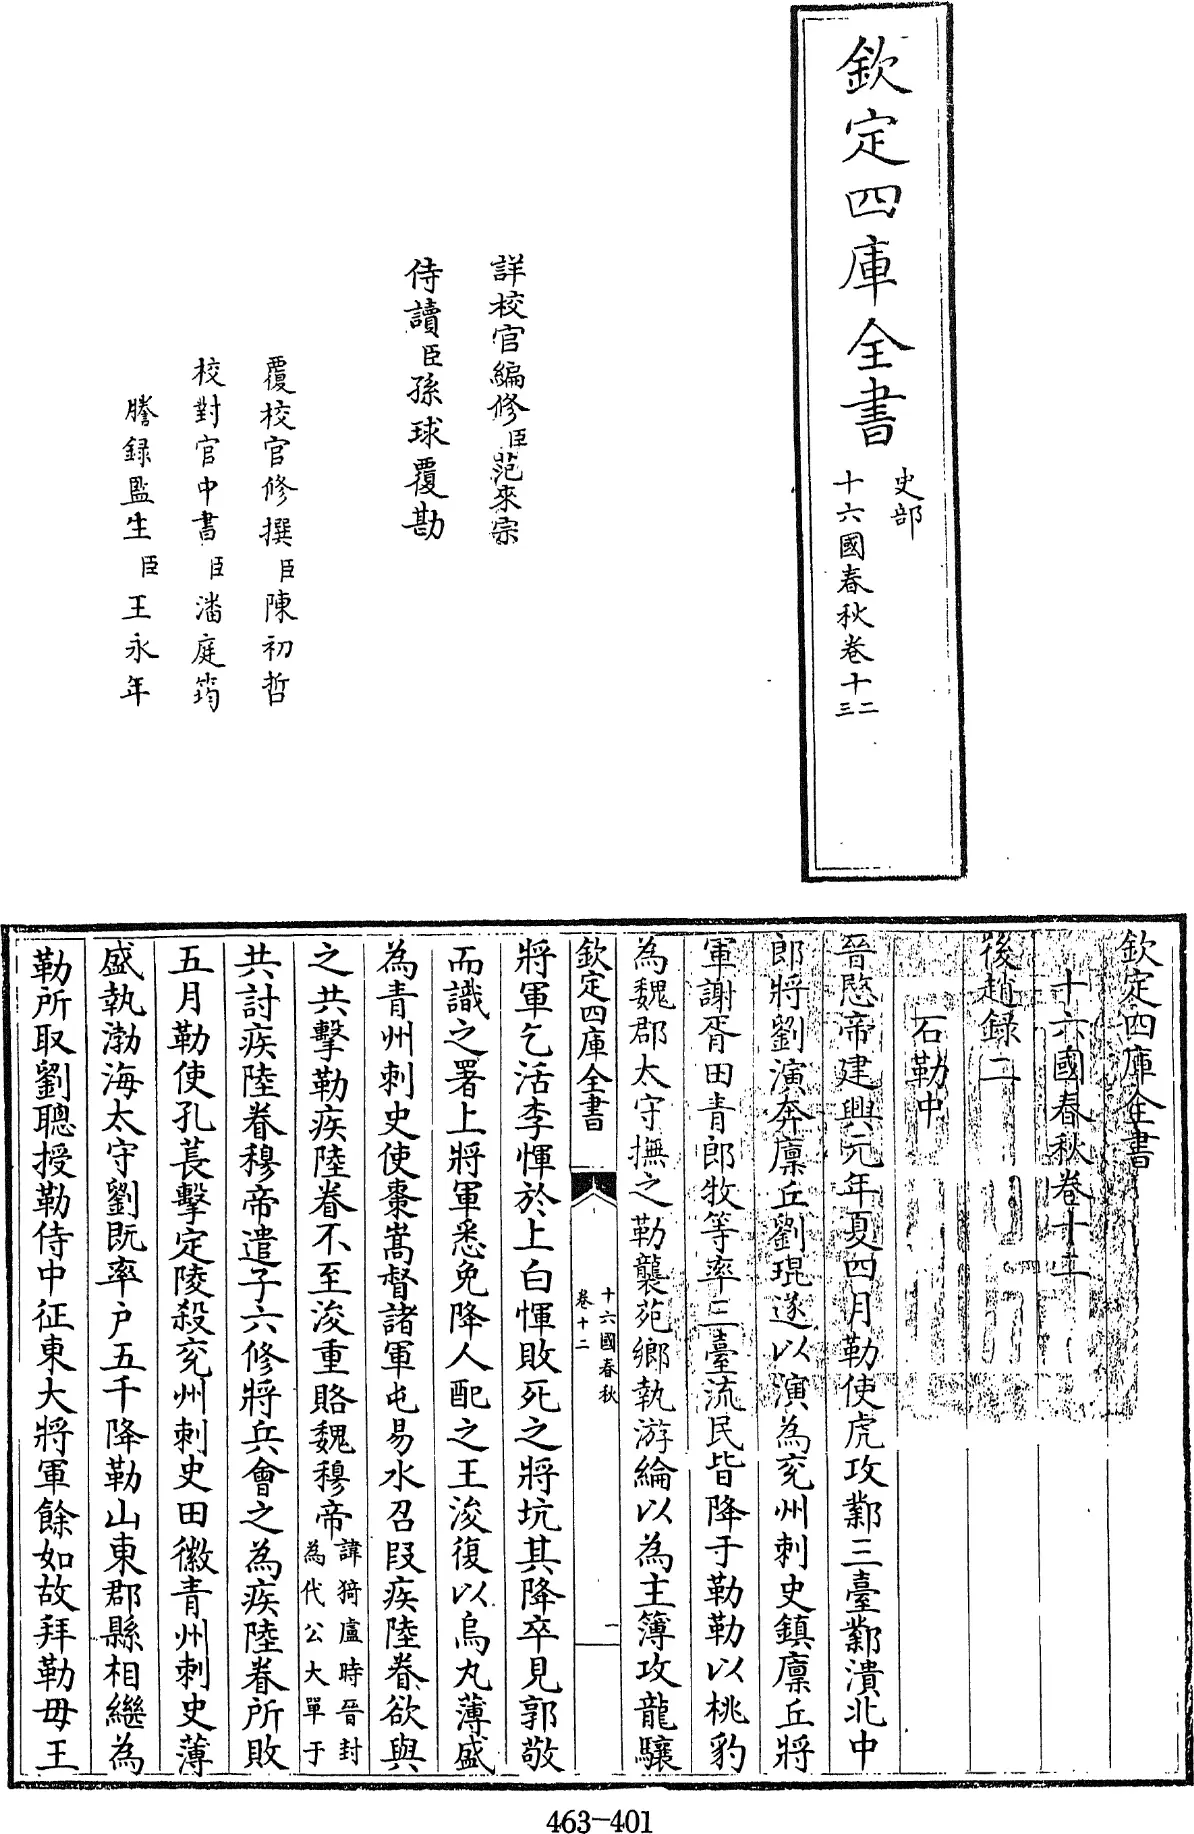 欽定四庫全書
史部
十六國春秋卷十二三
詳校官編修臣范來宗
侍讀臣孫球覆勘
覆校官修撰臣陳初哲
校對官中書臣潘庭筠
謄錄監生臣王永年
欽定四庫全書
十六國春秋卷十二
後趙錄二
石勒中
晉愍帝建興元年夏四月勒使虎攻鄴三臺鄴潰北中
郎將劉演奔廩丘劉琨遂以演為兗州刺史鎮廩丘將
軍謝胥田青郎牧等率三臺流民皆降于勒勒以桃豹
為魏郡太守撫之勒襲苑鄉執游綸以為主簿攻龍驤
欽定四庫全書
十六國春秋
卷十二
一
將軍乞活李惲於上白惲敗死之將坑其降卒見郭敬
而識之署上將軍悉免降人配之王浚復以烏丸薄盛
為青州刺史使棗嵩督諸軍屯易水召段疾陸眷欲與
之共擊勒疾陸眷不至浚重賂魏穆帝諱猗盧時晉封為代公大單于
共討疾陸眷穆帝遣子六修將兵會之為疾陸眷所敗
五月勒使孔萇擊定陵殺兗州刺史田徽青州刺史薄
盛執渤海太守劉既率户五千降勒山東郡縣相繼為
勒所取劉聰授勒侍中征東大將軍餘如故拜勒母王
463-401